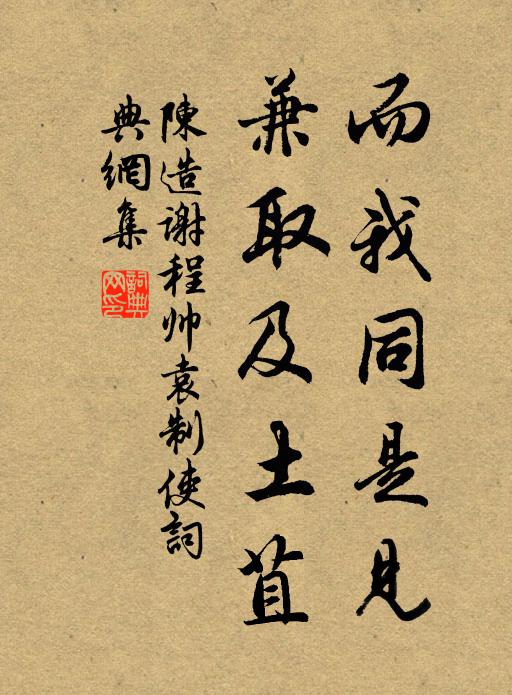 而我同是見
兼取及土苴
陳造謝程帅袁制使詞
典網集
詞典
网印